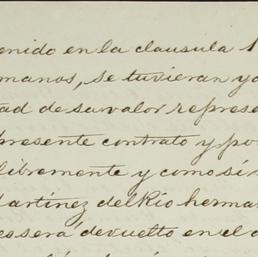 enido en la clausula 1
manos, se tuvieran ya
tad de su valor represe
presente contrato y por
libremente y como si
Martinez del Rio herma
es será devuelto en el